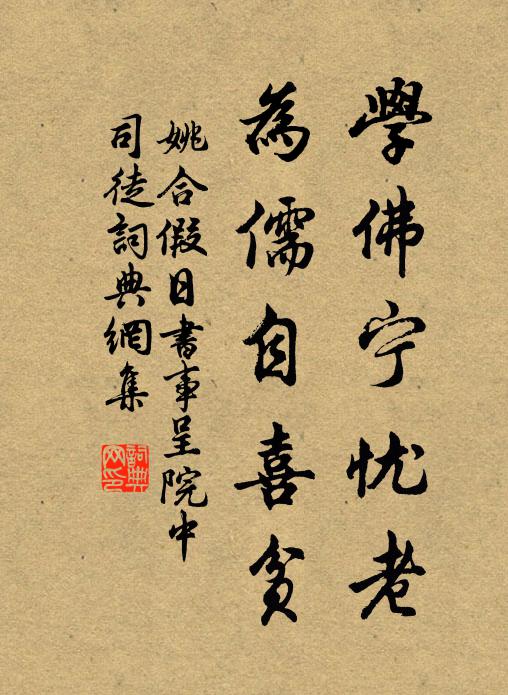 學佛宁忧老
為儒自喜貧
姚合假日書事呈院中
司徒詞典網集
詞典
网印